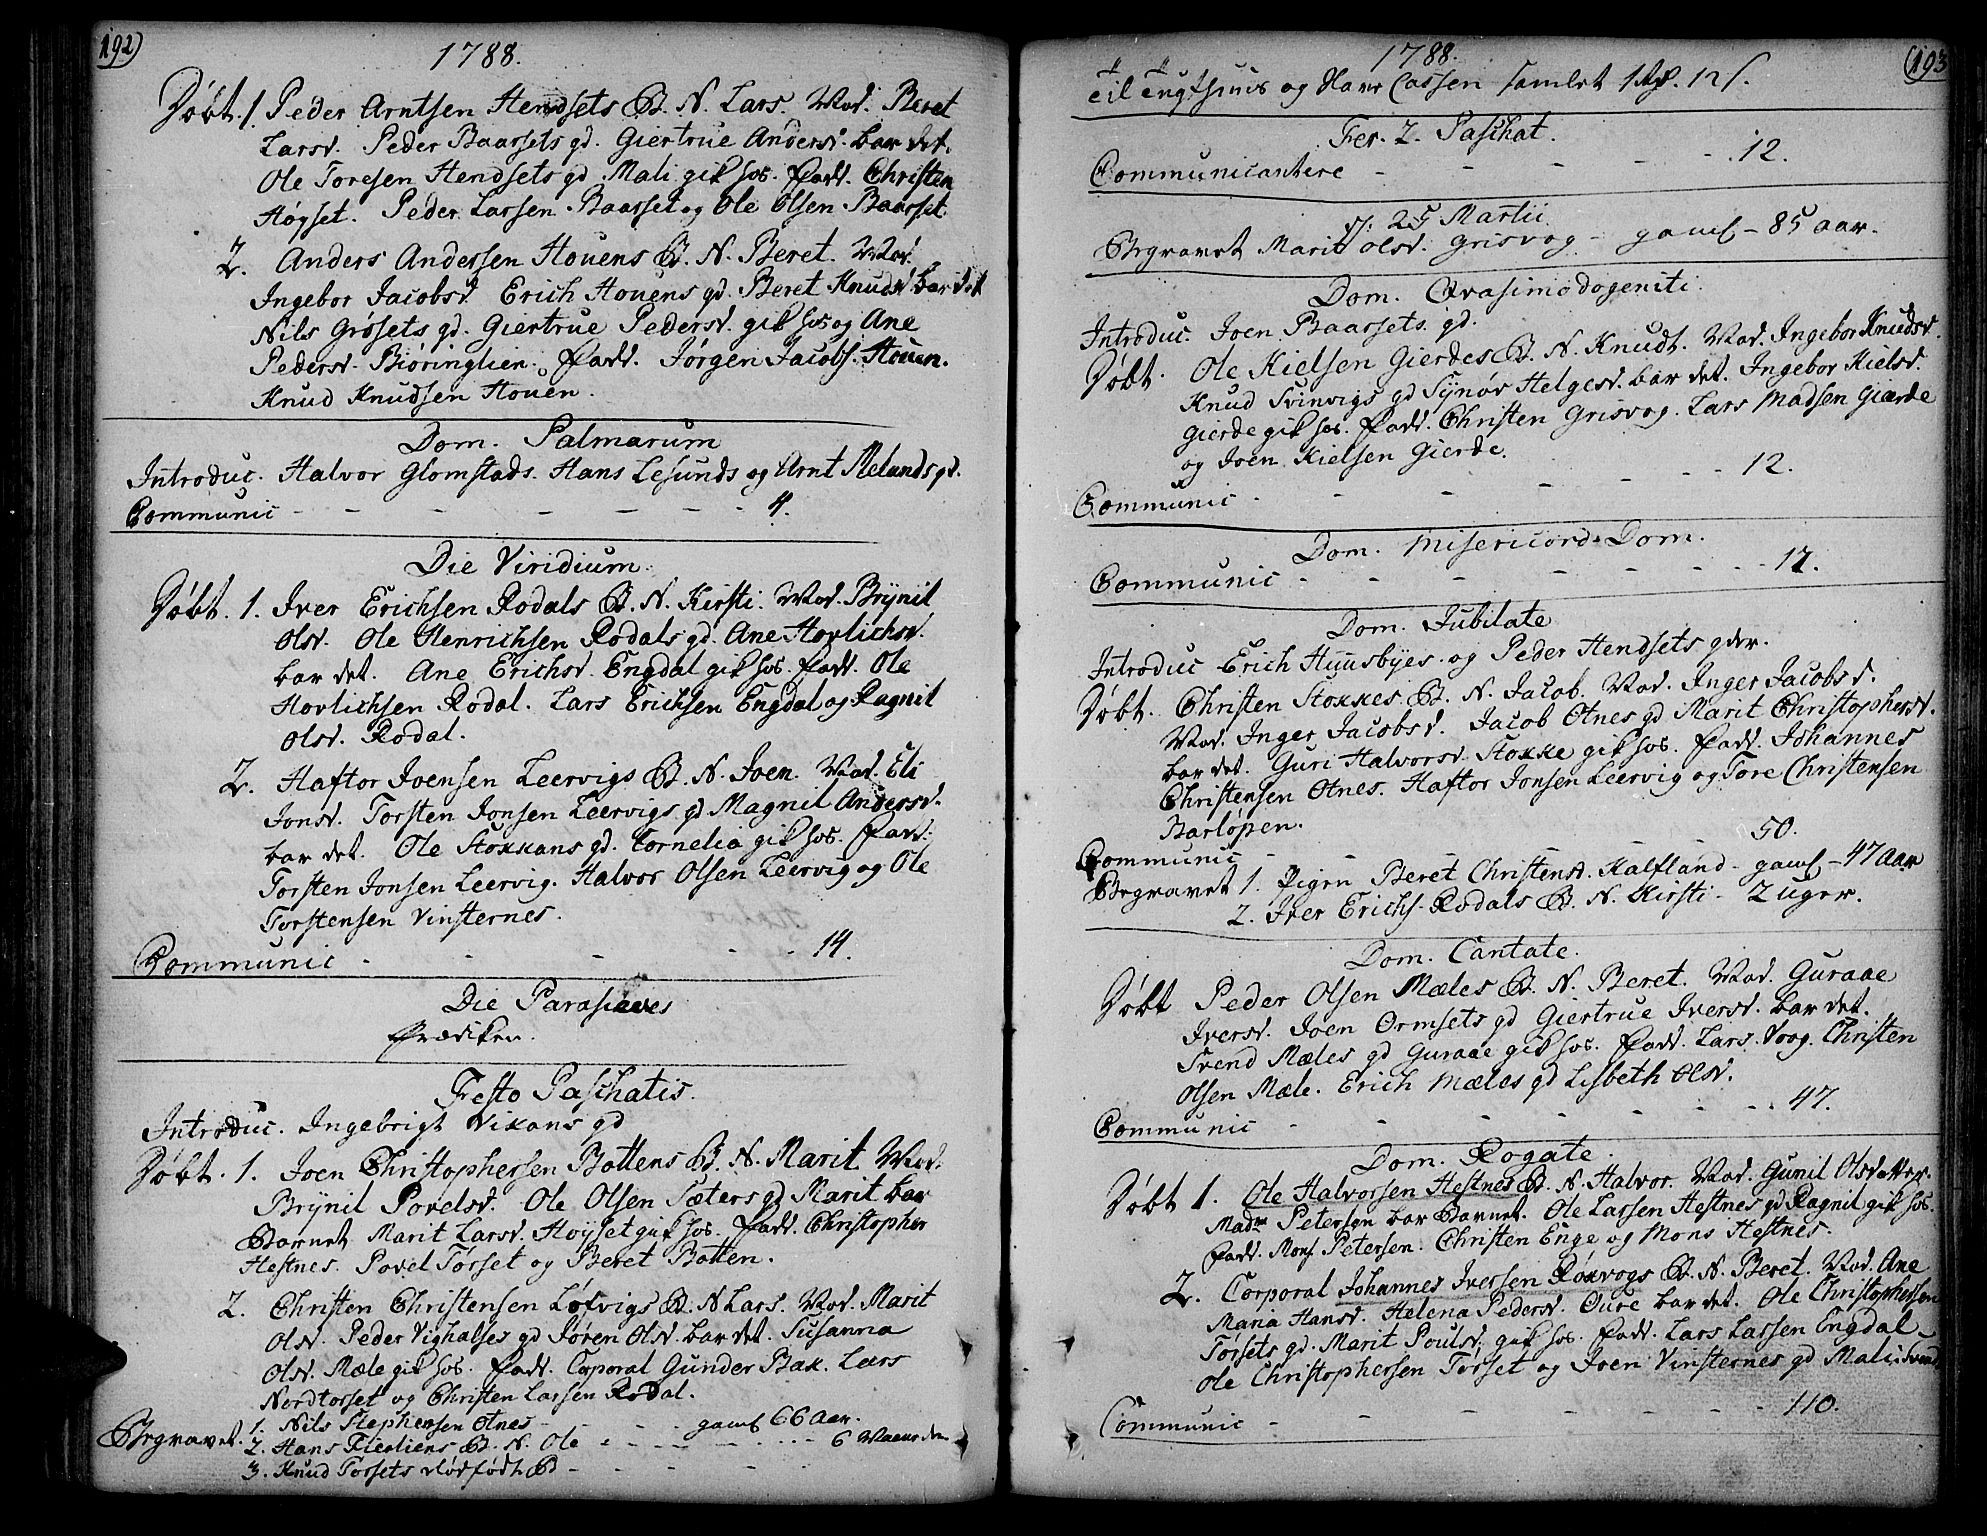 192)
1788.
Døbt. 1. Peder Arntsen Hendsets B. N. Lars. Mod. Beret
Larsd. Peder Baarsets gd. Giertrue Andersd. bar det.
Ole Toresen Hendsets gd. Mali gik hos. Fadd. Christen
Høyset. Peder Larsen Baarset og Ole Olsen Baarset.
2. Anders Andersen Houens B. N. Beret. Mod.
Ingebor Jacobsd. Erich Houens gd. Beret Knudsd bar det
Nils Grøsets gd. Giertrue Pedersd. gik hos og Ane
Pedersd. Biøringlien. Fadd. Jørgen Jacobs. Houen.
Knud Knudsen Houen.
Dom. Palmarum
Introduc. Halvor Glomstads. Hans Lesunds og Arnt Melands gd.
Communic - - - - - - - 4.
Die Viridium.
Døbt. 1. Iver Erichsen Rodals B. N. Kirsti. Mod. Brynil
Olsd. Ole Henrichsen Rodals gd. Ane Hovlichsd.
bar det. Ane Erichsd. Engdal gik hos. Fadd. Ole
Hovlichsen Rodal. Lars Erichsen Engdal og Ragnil
Olsd. Rodal.
2. Haftor Joensen Leervigs B. N. Joen. Mod. Eli
Jonsd. Torsten Jonsen Leervigs gd Magnil Andersd.
bar det. Ole Stokkans gd. Cornelia gik hos. Fadd:
Torsten Jonsen Leervig. Halvor Olsen Leervig og Ole
Torstensen Vinsternes.
Communic - - - - - 14.
Die Parasceves
Prædiken.
Festo Paschatis.
Introduc. Ingebrigt Vikans gd
Døbt. 1. Joen Christophersen Bottens B. N. Marit Mod.
Brynil Povelsd. Ole Olsen Sæters gd Marit bar
Barnet Marit Larsd. Høyset gik hos. Fadd. Christopher
Hestnes. Povel Tørset og Beret Botten.
2. Christen Christensen Løfvigs B. N Lars. Mod. Marit
Olsd. Peder Vighalses gd Søren Olsd. bar det. Susanna
Olsd. Mæle gik hos. Fadd. Corporal Gunder Bak. Lars
Nordtorset og Christen Larsen Rodal.
Begravet. 1. Nils Stephensen Otnes - - - - gaml 66 Aar.
2. Hans B. N. Ole - - - - - - 6 Maaneder
3. Knud Torsets dødfødt B - - - -
193
1788.
til Tugthuus og Have Cassen samlet 1 Rd. 12 s.
Fer. 2. Paschat.
Communicantere - - - - - 12.
d. 25 Martii
Begravet Marit Olsd. Grisvog - gaml - 85 aar.
Dom. Qvasimodogeniti.
Introduc. Joen Baarsets gd.
Døbt. Ole Kielsen Gierdes B. N. Knudt. Mod. Ingebor Knudsd.
Knud Svinvigs gd Synøv Helgesd. bar det. Ingebor Kielsd.
Gierde gik hos. Fadd. Christen Grisvog. Lars Madsen Gierde
og Joen Kielsen Gierde.
Communic - - - - - - 12.
Dom. Misericord. Dom.
Communic - - - - - - - 17.
Dom. Jubilate
Introduc Erich Huusbyes og Peder Hendsets gdr.
Døbt. Christen Stokkes B. N. Jacob. Mod. Inger Jacobsd.
Mod. Inger Jacobsd. Jacob Otnes gd Marit Christophersd.
bar det. Guri Halvorsd. Stokke gik hos. Fadd. Johannes
Christensen Otnes. Haftor Jonsen Leervig og Tore Christensen
Barløpen.
Communic - - - - - 50.
Begravet 1. Pigen Beret Christensd. Kalfland - gaml - 47 Aar
2. Iver Erichs. Rodals B. N. Kirsti - 2 uger.
Dom. Cantate.
Døbt Peder Olsen Mæles B. N. Beret. Mod. Guraae
Iversd. Joen Ormsets gd Giertrue Iversd. bar det.
Svend Mæles gd Guraae gik hos. Fadd. Lars Voog. Christen
Olsen Mæle. Erich Mæles gd Lisbeth Olsd.
Communic - - - - - - 47.
Dom. Rogate.
Døbt 1. Ole Halvorsen Hestnes B. N. Halvor. Mod. Gunil Olsdatter.
Madme Petersen bar Barnet. Ole Larsen Hestnes gd Ragnil gik hos.
Fadd. Mons. Petersen. Christen Enge og Mons Hestnes.
2. Corporal Johannes Iversen Roxvogs B. N. Beret. Mod. Ane
Maria Hansd. Helena Pedersd. Øure bar det. Ole Christophersen
Tørsets gd. Marit Poulsd. gik hos. Fadd. Lars Larsen Engdal
Ole Christophersen Torset og Joen Vinsternes gd Mali
Communic - - - - - - 110.